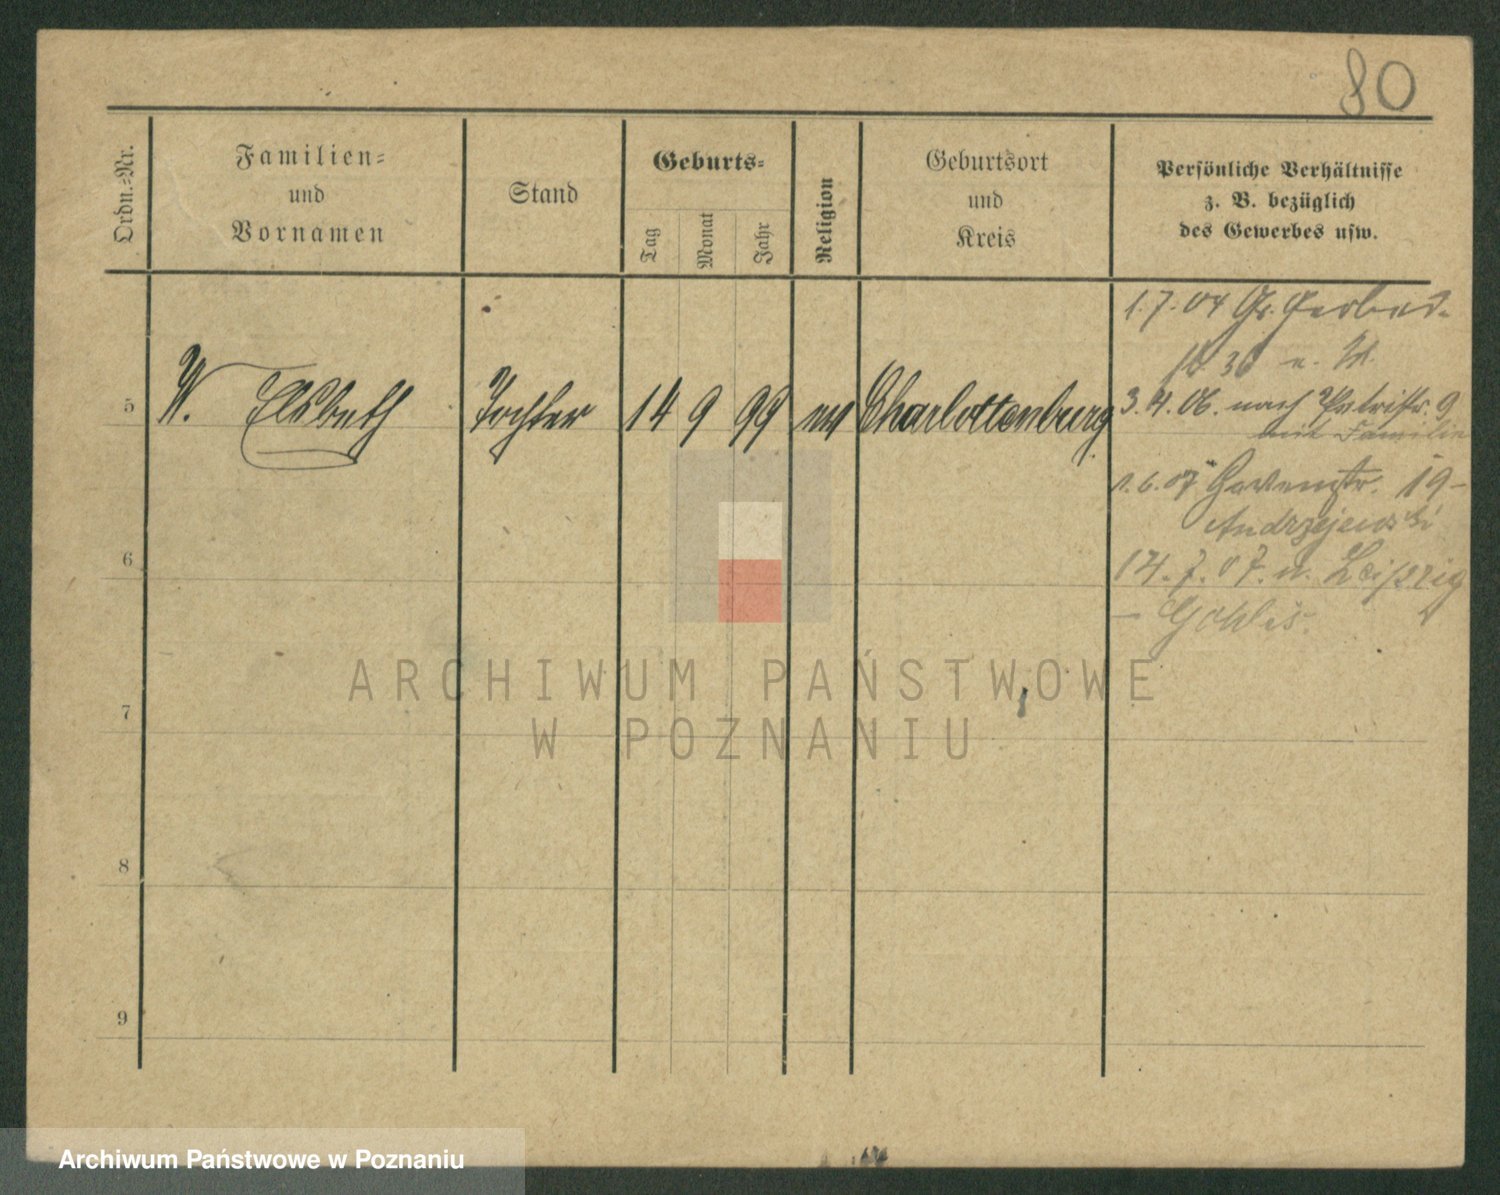 80
Ordn.-Nr.
Familien-
und
Vornamen
Stand
Geburts-
Tag
Monat
Jahr
Religion
Geburtsort
und
Kreis
Persönliche Verhältnisse
z. B. bezüglich
des Gewerbes usw.
1.7.04 Gr. Gerber
36 n.
5 W. Elsbeth Tochter 14 9 99 ev Charlottenburg 3.4.06. nach Petristr. 9
mit Familie
1.6.07 19-
Andrzejewski
6
14.7.07. n. Leipzig
- Gohlis.
ARCHIWUM PAŃSTWOWE
7
W POZNANIU
8
9
Archiwum Państwowe w Poznaniu